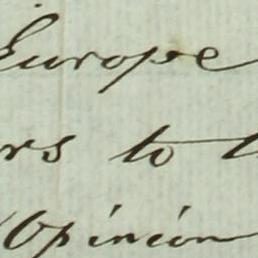 Europe
rs to t
Opinion